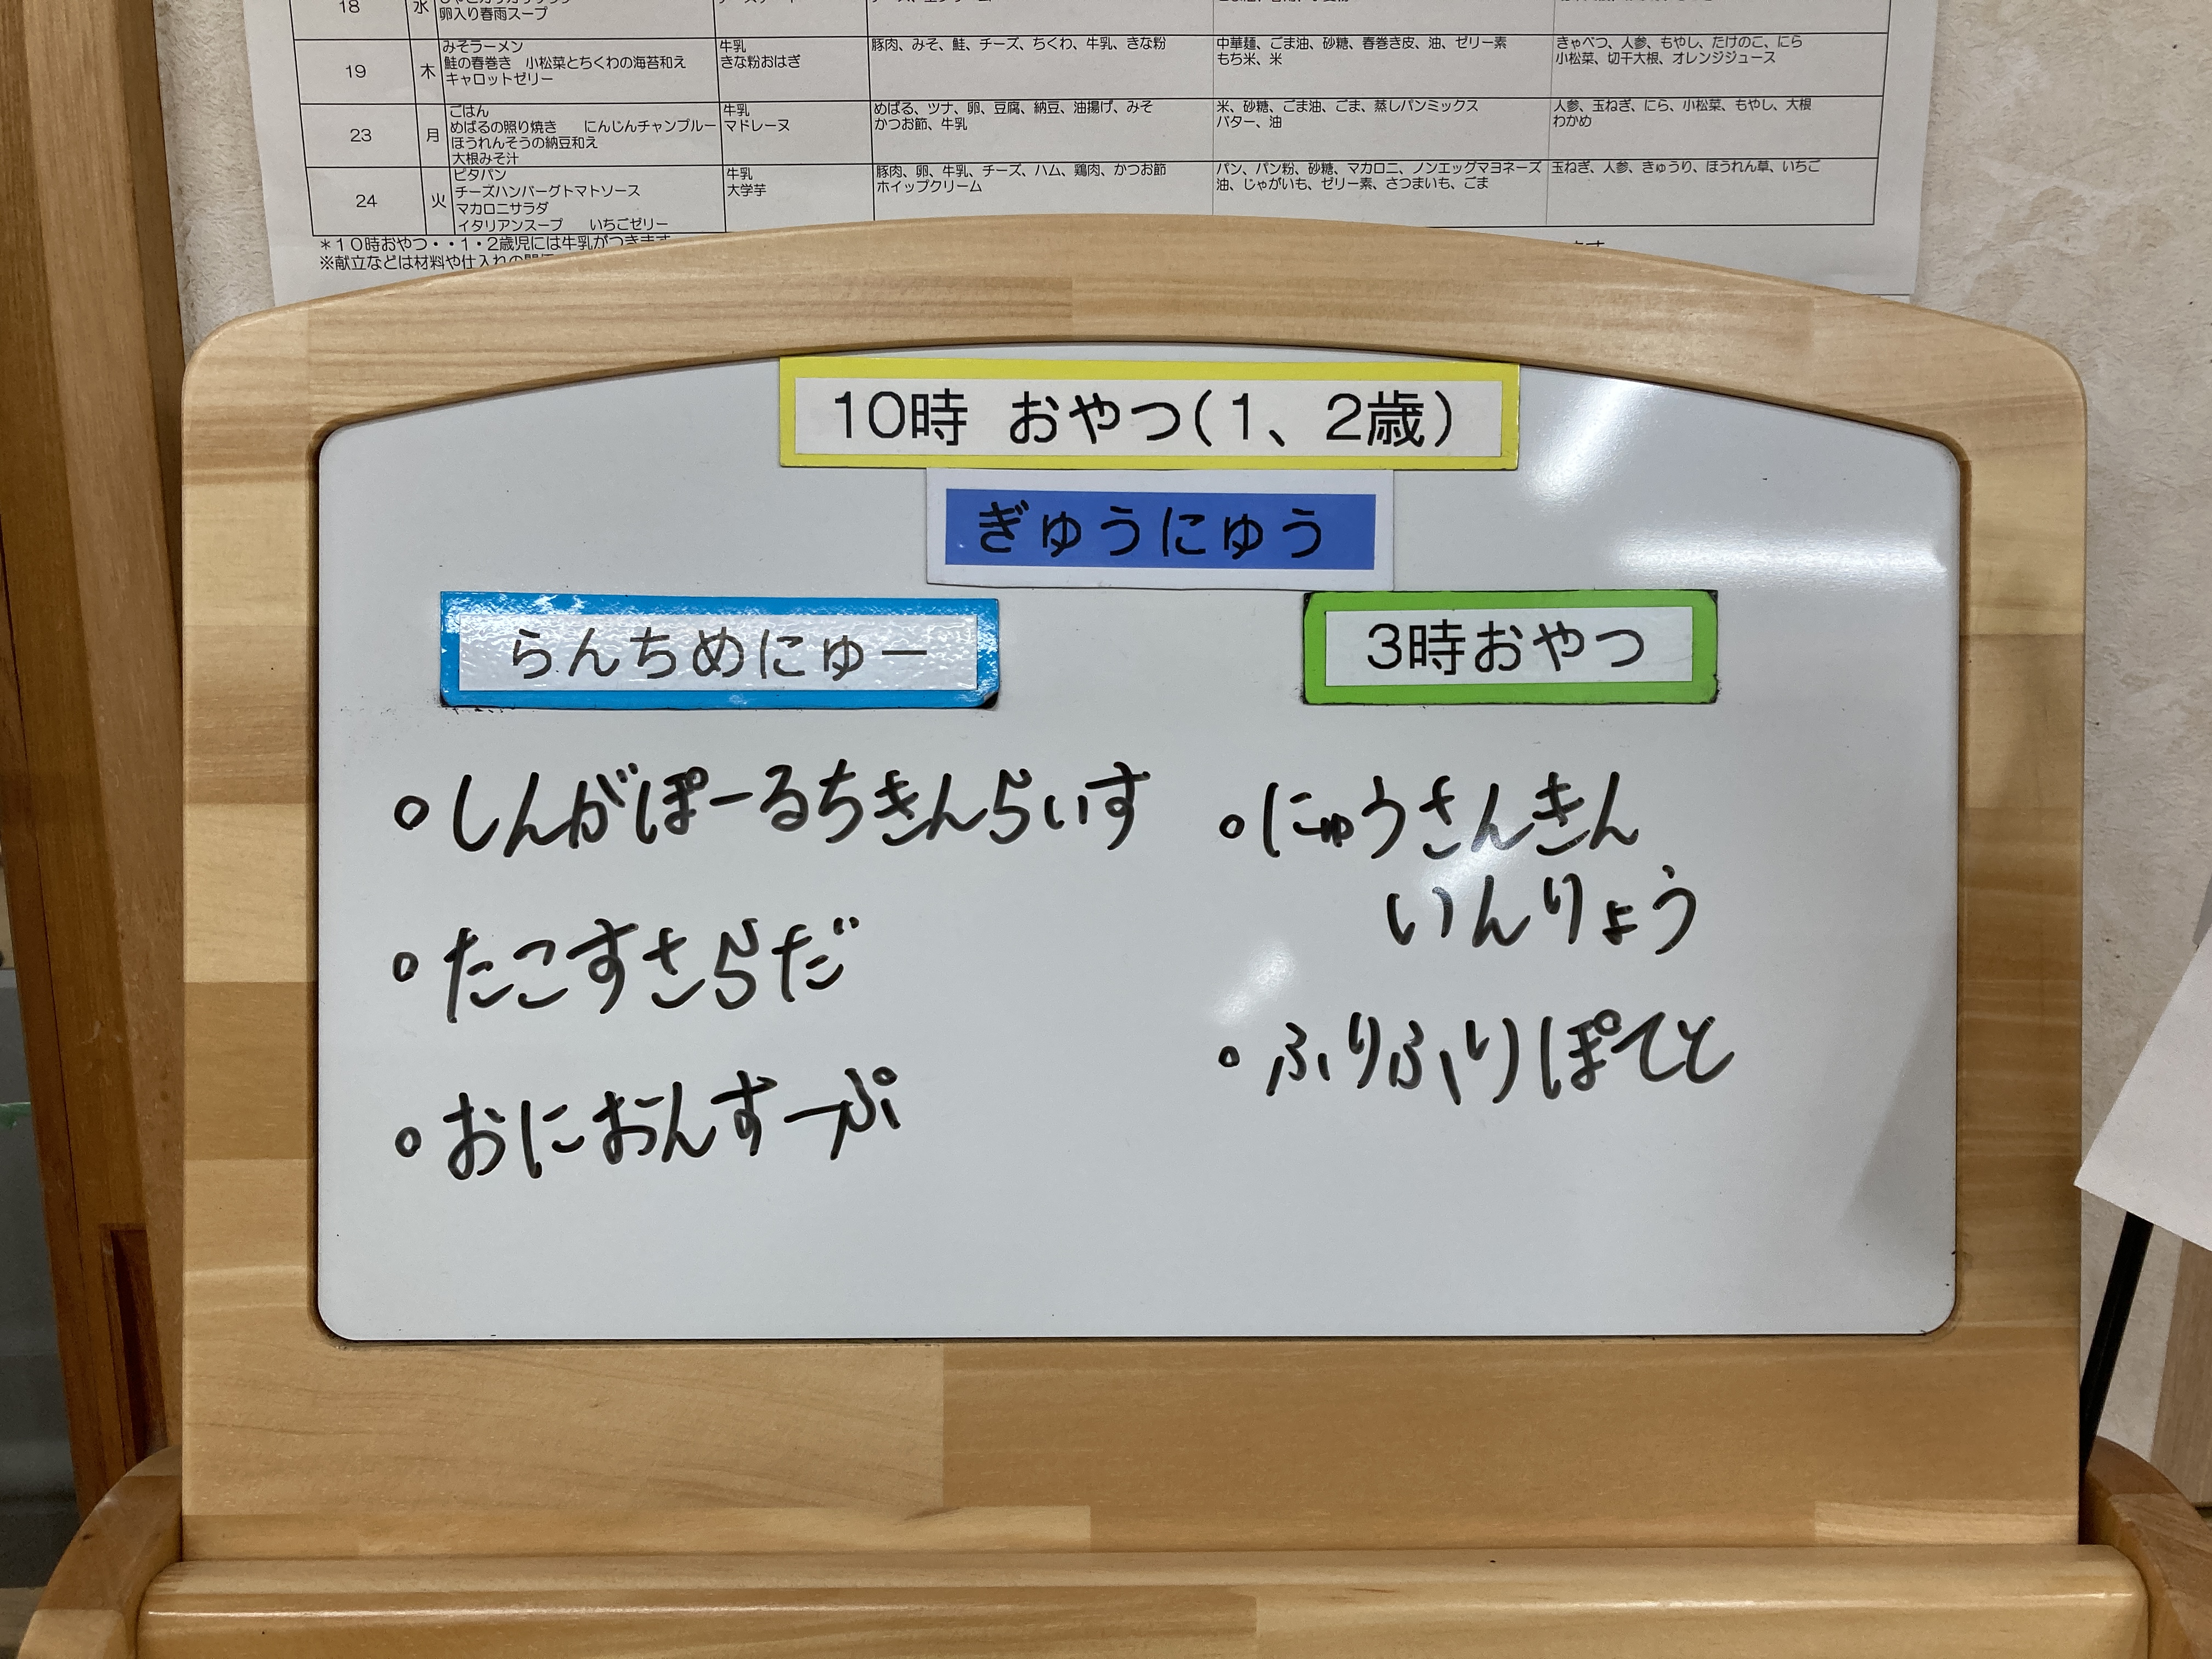 18 水
卵入り春雨スープ
19 木 みそラーメン 牛乳 豚肉、みそ、鮭、チーズ、ちくわ、牛乳、きな粉 中華麺、ごま油、砂糖、春巻き皮、油、ゼリー素 きゃべつ、人参、もやし、たけのこ、にら
鮭の春巻き 小松菜とちくわの海苔和え きな粉おはぎ もち米、米 小松菜、切干大根、オレンジジュース
キャロットゼリー
23 月 ごはん 牛乳 めばる、ツナ、卵、豆腐、納豆、油揚げ、みそ 米、砂糖、ごま油、ごま、蒸しパンミックス 人参、玉ねぎ、にら、小松菜、もやし、大根
めばるの照り焼き にんじんチャンプルー マドレーヌ かつお節、牛乳 バター、油 わかめ
ほうれんそうの納豆和え
大根みそ汁
24 火 ピタパン 牛乳 豚肉、卵、牛乳、チーズ、ハム、鶏肉、かつお節 パン、パン粉、砂糖、マカロニ、ノンエッグマヨネーズ 玉ねぎ、人参、きゅうり、ほうれん草、いちご
チーズハンバーグトマトソース 大学芋 ホイップクリーム 油、じゃがいも、ゼリー素、さつまいも、ごま
マカロニサラダ
イタリアンスープ いちごゼリー
＊１０時おやつ・・１・２歳児には牛乳がつきます
※献立などは材料や仕入れの
10時 おやつ(1、2歳)
ぎゅうにゅう
らんちめにゅー
3時おやつ
○しんがぽーるちきんらいす
○たこすさらだ
○おにおんすーぷ
○にゅうさんきん
いんりょう
○ふりふりぽてと